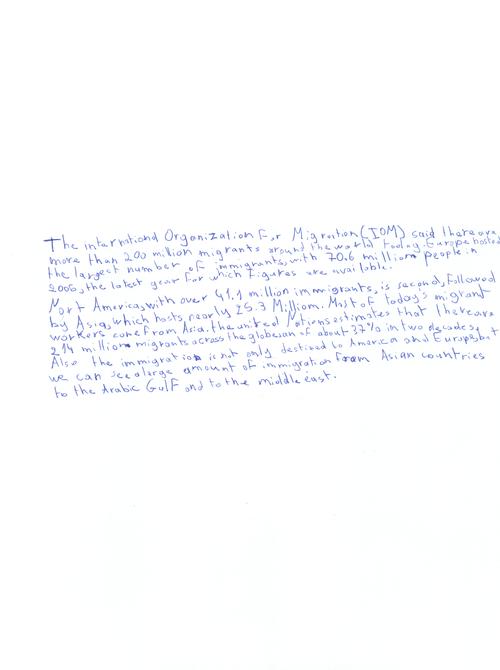 The international Organization For Migration (IOM) said there are
more than 200 million migrants around the world today. Europe hosted
the largest number of immigrants, with 70.6 million people in
2005, the latest year for which figures are available.
Nort America, with over 45.1 million immigrants, is second, Followed
by Asia, which hosts, nearly 25.3 Million. Most of today's migrant
workers come from Asia. the united Nations estimates that there are
214 million migrants across the globe, an of about 37% in two decades,
Also the immigration is not only destined to America and Europe, but
we can see a large amount of immigration from Asian countries
to the Arabic Gulf and to the middle east.